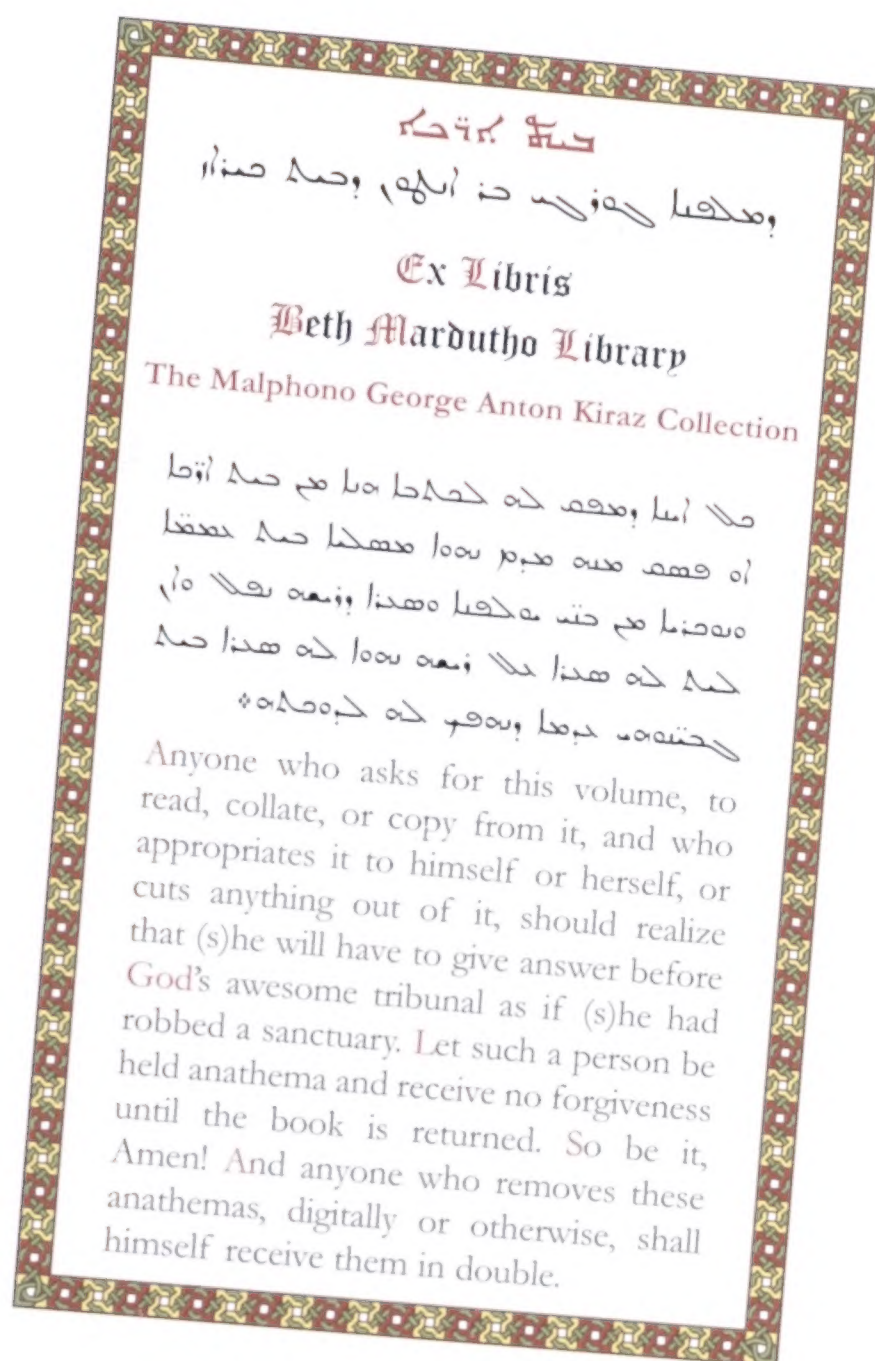 ܒܝܬ ܐܪ̈ܟܐ
ܕܡܠܦܢܐ ܓܘܪܓܝ ܒܪ ܐܢܛܘܢ ܕܒܝܬ ܟܝܪܐܙ
Ex Libris
Beth Mardutho Library
The Malphono George Anton Kiraz Collection
ܟܠ ܐܢܫܐ ܕܡܦܩ ܠܗ ܠܟܬܒܐ ܗܢܐ ܡܢ ܒܝܬ ܐܪ̈ܟܐ
ܐܘ ܦܣܩ ܡܢܗ ܡܕܡ ܢܗܘܐ ܡܣܠܝܐ ܒܝܬ ܥܡܡ̈ܐ
ܘܢܘܟܪܝܐ ܡܢ ܒܢ̈ܝ ܝܘܠܦܢܐ ܘܣܥܪܐ ܕܪܝܫܗ ܢܦܠ ܘܐܢ
ܠܝܬ ܠܗ ܣܥܪܐ ܥܠ ܪܝܫܗ ܢܗܘܐ ܠܗ ܣܥܪܐ ܒܝܬ
ܓܒܝܢ̈ܘܗܝ ܥܕܡܐ ܕܢܗܦܟ ܠܗ ܠܕܘܟܬܗ܀
Anyone who asks for this volume, to
read, collate, or copy from it, and who
appropriates it to himself or herself, or
cuts anything out of it, should realize
that (s)he will have to give answer before
God's awesome tribunal as if (s)he had
robbed a sanctuary. Let such a person be
held anathema and receive no forgiveness
until the book is returned. So be it,
Amen! And anyone who removes these
anathemas, digitally or otherwise, shall
himself receive them in double.